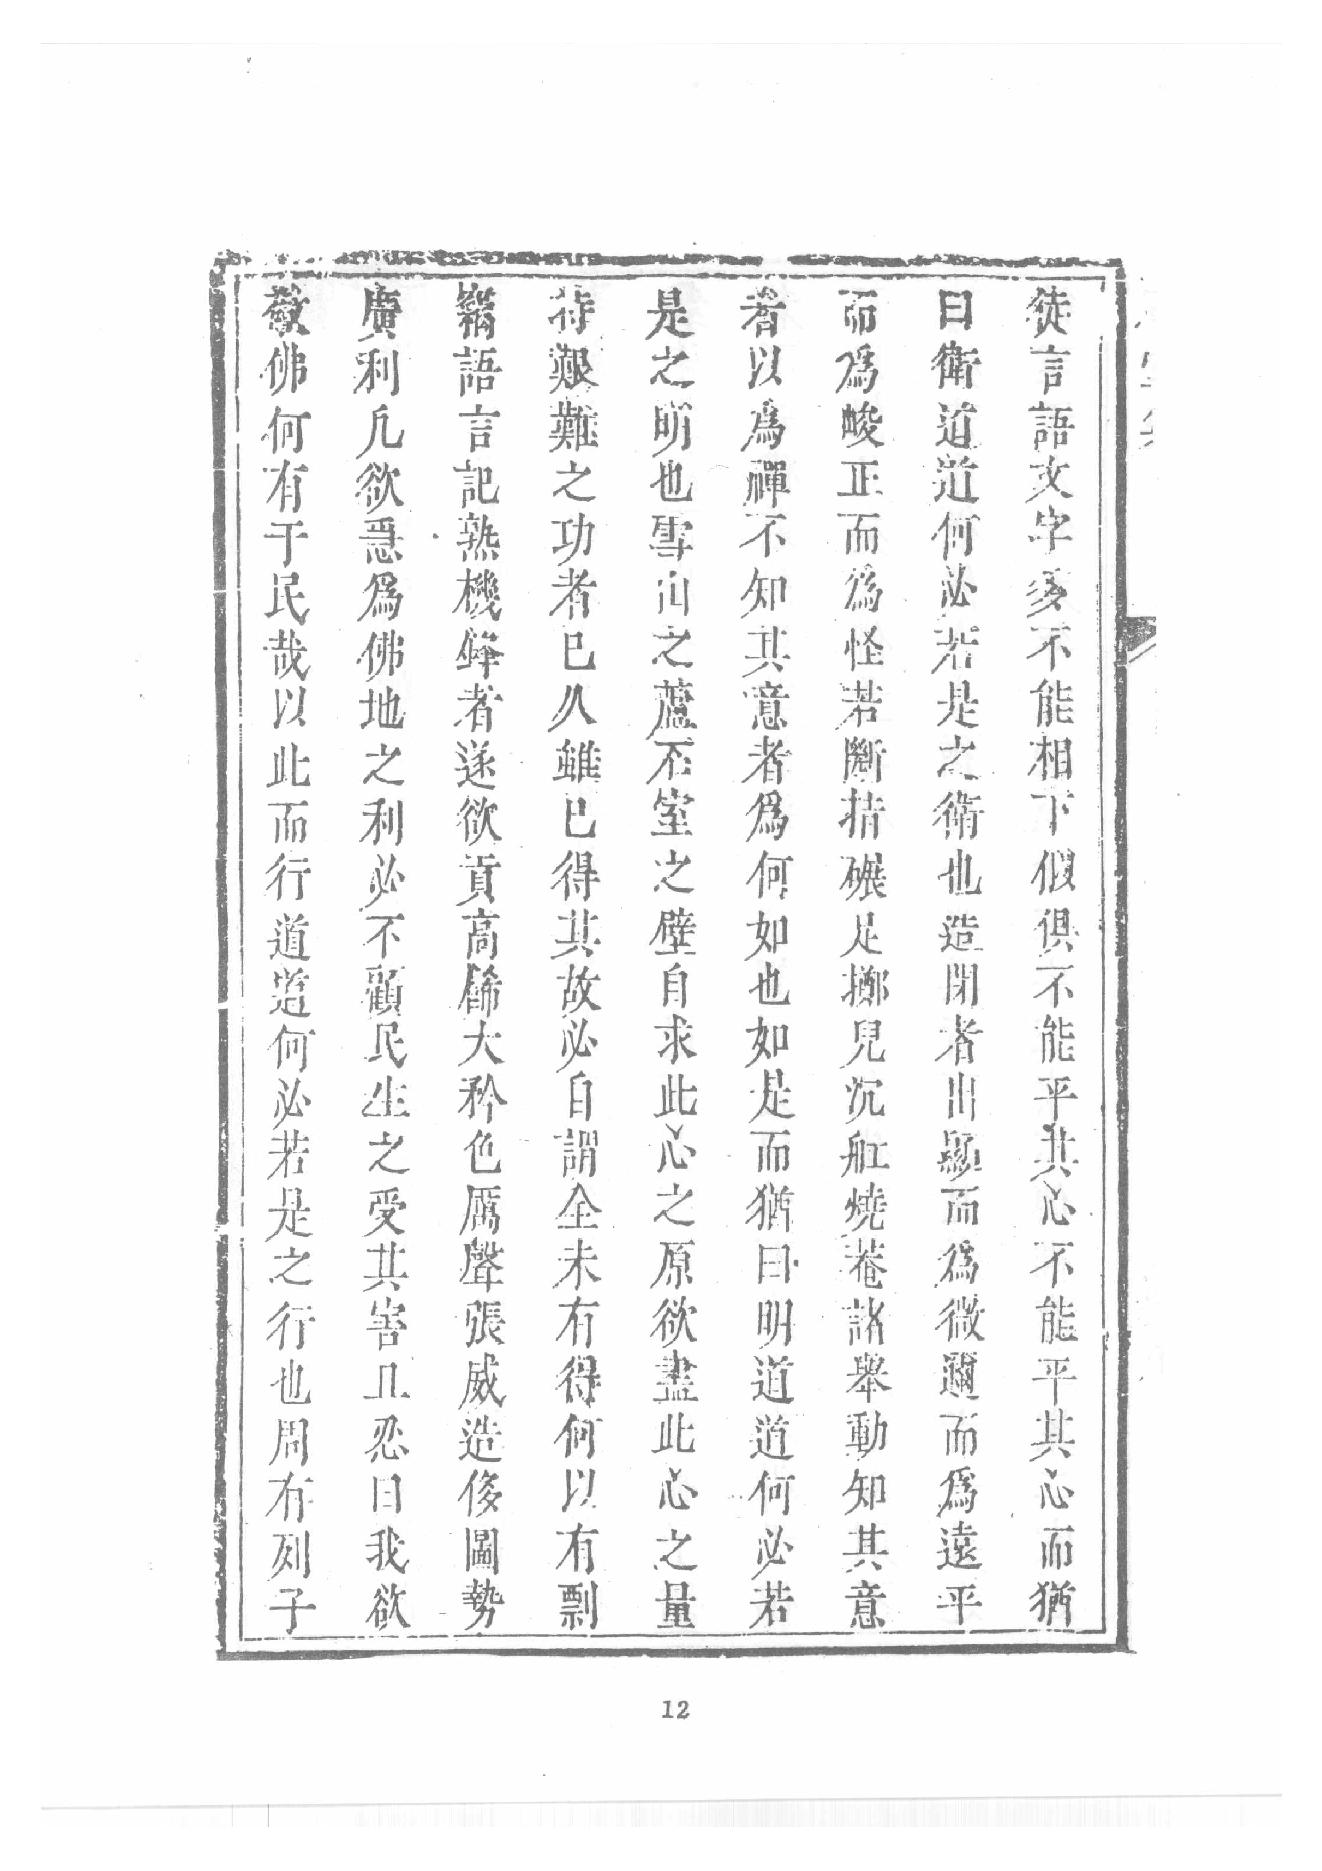 徒言語文字多不能相下假俱不能平其心不能平其心而猶
曰衛道道何必若是之衛也造閉者出顯而為微邇而為遠平
而為峻正而為怪若斷指碾足擲兒沉舡燒菴諸舉動知其意
者以為禪不知其意者為何如也如是而猶曰明道道何必若
是之明也雪山之蘆石室之壁自求此心之原欲盡此心之量
待艱難之功者已久雖已得其故必自謂全未有得何以有剽
竊語言記熟機鋒者遂欲貢高餙大矜色厲聲張威造侈圖勢
廣利凡欲急為佛地之利必不顧民生之受其害且忍曰我欲
敬佛何有于民哉以此而行道道何必若是之行也周有列子
12